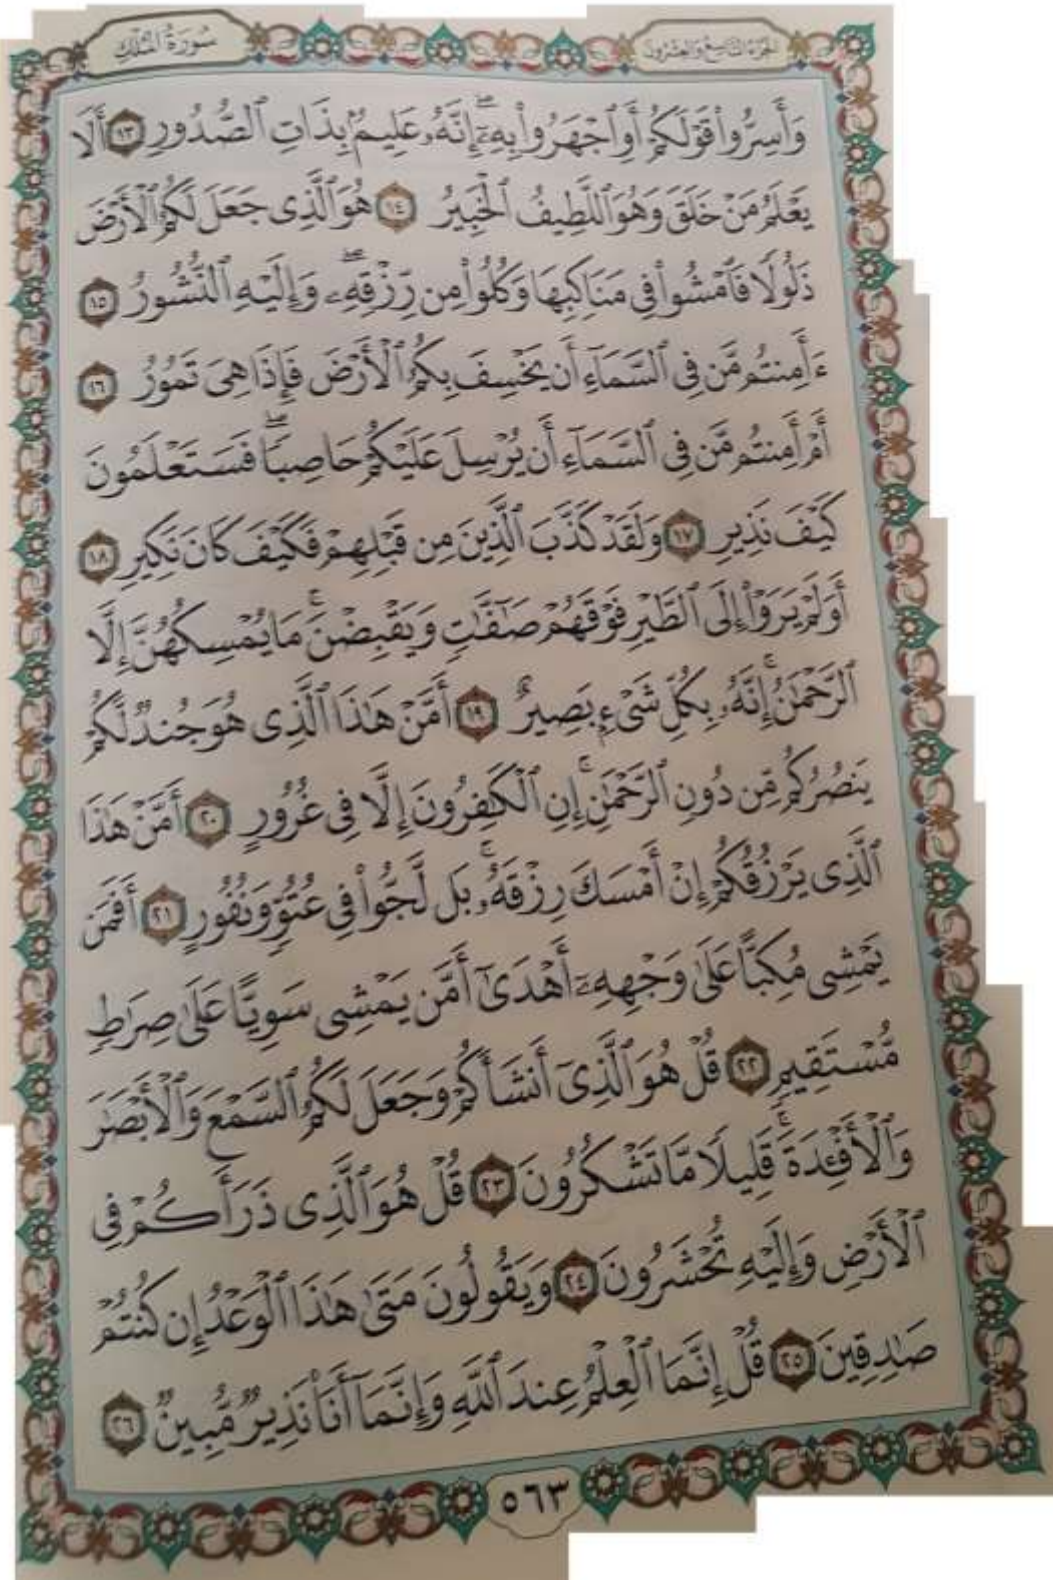 الجزء التاسع والعشرون
سورة الملك
وَأَسِرُّوا۟ قَوْلَكُمْ أَوِ ٱجْهَرُوا۟ بِهِۦٓ ۖ إِنَّهُۥ عَلِيمٌۢ بِذَاتِ ٱلصُّدُورِ ١٣ أَلَا
يَعْلَمُ مَنْ خَلَقَ وَهُوَ ٱللَّطِيفُ ٱلْخَبِيرُ ١٤ هُوَ ٱلَّذِى جَعَلَ لَكُمُ ٱلْأَرْضَ
ذَلُولًا فَٱمْشُوا۟ فِى مَنَاكِبِهَا وَكُلُوا۟ مِن رِّزْقِهِۦ ۖ وَإِلَيْهِ ٱلنُّشُورُ ١٥
ءَأَمِنتُم مَّن فِى ٱلسَّمَآءِ أَن يَخْسِفَ بِكُمُ ٱلْأَرْضَ فَإِذَا هِىَ تَمُورُ ١٦
أَمْ أَمِنتُم مَّن فِى ٱلسَّمَآءِ أَن يُرْسِلَ عَلَيْكُمْ حَاصِبًا ۖ فَسَتَعْلَمُونَ
كَيْفَ نَذِيرِ ١٧ وَلَقَدْ كَذَّبَ ٱلَّذِينَ مِن قَبْلِهِمْ فَكَيْفَ كَانَ نَكِيرِ ١٨
أَوَلَمْ يَرَوْا۟ إِلَى ٱلطَّيْرِ فَوْقَهُمْ صَٰٓفَّٰتٍ وَيَقْبِضْنَ ۚ مَا يُمْسِكُهُنَّ إِلَّا
ٱلرَّحْمَٰنُ ۚ إِنَّهُۥ بِكُلِّ شَىْءٍۭ بَصِيرٌ ١٩ أَمَّنْ هَٰذَا ٱلَّذِى هُوَ جُندٌ لَّكُمْ
يَنصُرُكُم مِّن دُونِ ٱلرَّحْمَٰنِ ۚ إِنِ ٱلْكَٰفِرُونَ إِلَّا فِى غُرُورٍ ٢٠ أَمَّنْ هَٰذَا
ٱلَّذِى يَرْزُقُكُمْ إِنْ أَمْسَكَ رِزْقَهُۥ ۚ بَل لَّجُّوا۟ فِى عُتُوٍّ وَنُفُورٍ ٢١ أَفَمَن
يَمْشِى مُكِبًّا عَلَىٰ وَجْهِهِۦٓ أَهْدَىٰٓ أَمَّن يَمْشِى سَوِيًّا عَلَىٰ صِرَٰطٍ
مُّسْتَقِيمٍ ٢٢ قُلْ هُوَ ٱلَّذِىٓ أَنشَأَكُمْ وَجَعَلَ لَكُمُ ٱلسَّمْعَ وَٱلْأَبْصَٰرَ
وَٱلْأَفْـِٔدَةَ ۖ قَلِيلًا مَّا تَشْكُرُونَ ٢٣ قُلْ هُوَ ٱلَّذِى ذَرَأَكُمْ فِى
ٱلْأَرْضِ وَإِلَيْهِ تُحْشَرُونَ ٢٤ وَيَقُولُونَ مَتَىٰ هَٰذَا ٱلْوَعْدُ إِن كُنتُمْ
صَٰدِقِينَ ٢٥ قُلْ إِنَّمَا ٱلْعِلْمُ عِندَ ٱللَّهِ وَإِنَّمَآ أَنَا۠ نَذِيرٌ مُّبِينٌ ٢٦
٥٦٣